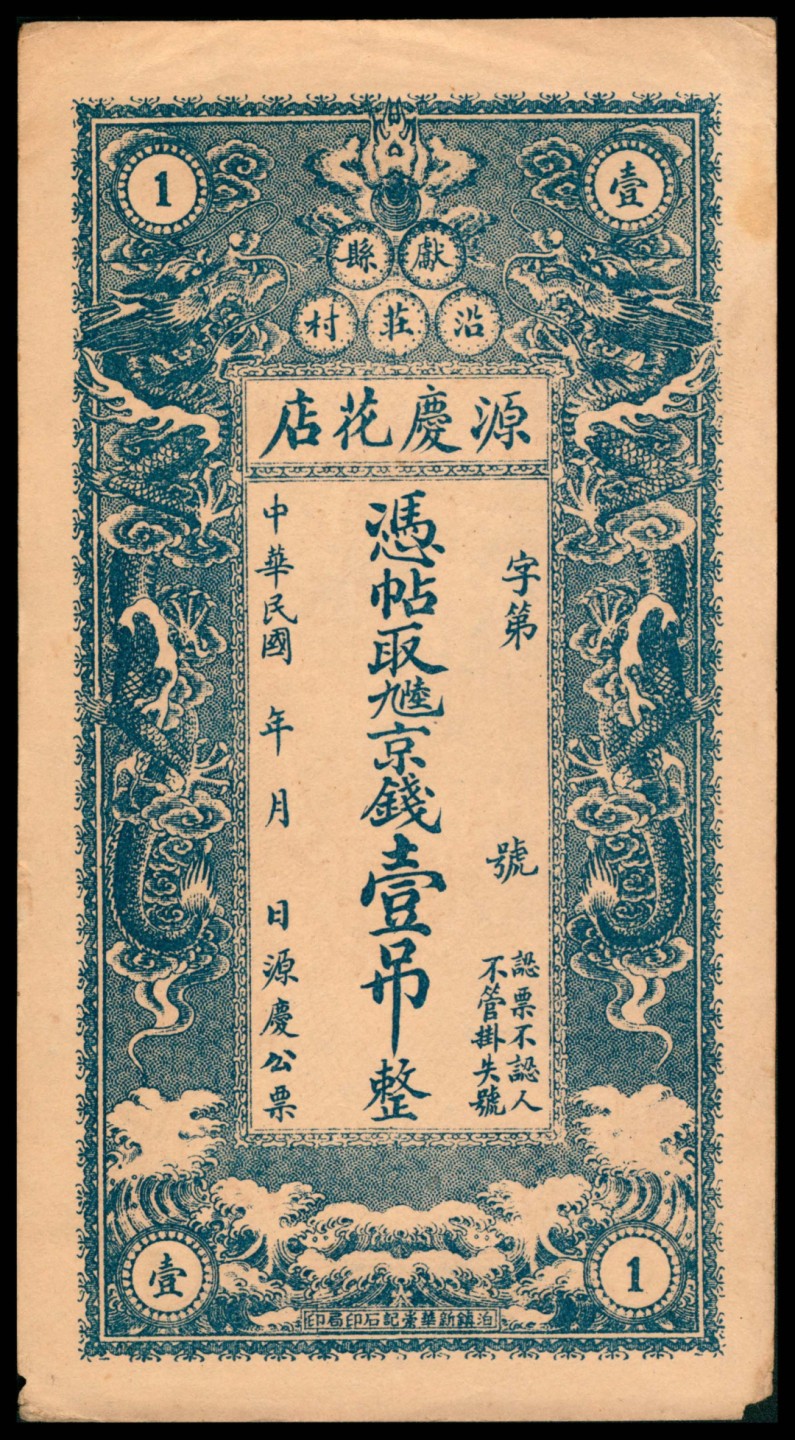 1
壹
獻縣
沿莊村
源慶花店
字第 號
認票不認人
不管掛失號
憑帖取九陸京錢壹吊整
中華民國 年 月 日源慶公票
壹
1
泊鎮新華 記石印局印